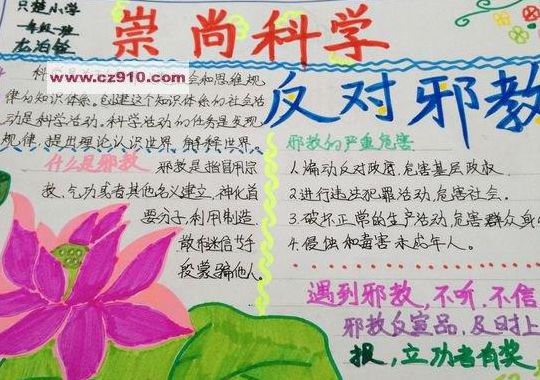 只楚小学
一年级一班
崇尚科学
反对邪教
www.cz910.com
会和思维规
律的知识体系。创建这个知识体系的社会活
动是科学活动。科学活动的任务是发现
规律,提出理论认识世界,解释世界。
什么是邪教
邪教是指冒用宗
教、气功或者其他名义建立,神化首
要分子,利用制造
散布迷信
蒙骗他人。
邪教的严重危害
1.煽动反对政府,危害基层政权
2.进行违法犯罪活动,危害社会。
3.破坏正常的生产活动,危害群众身
4.侵蚀和毒害未成年人。
遇到邪教,不听.不信
邪教反宣品,及时上
报,立功者有奖